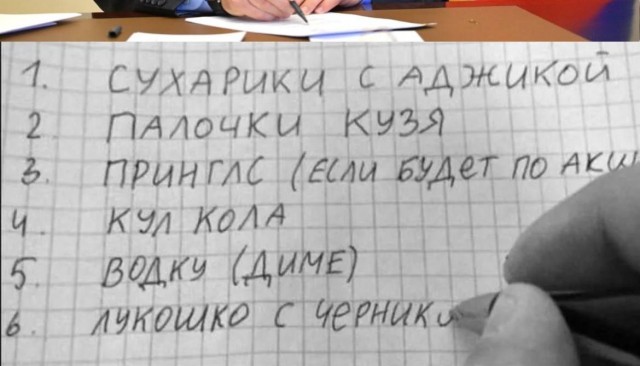 1. СУХАРИКИ С АДЖИКОЙ
2. ПАЛОЧКИ КУЗЯ
3. ПРИНГЛС (ЕСЛИ БУДЕТ ПО АКЦИ
4. КУЛ КОЛА
5. ВОДКУ (ДИМЕ)
6. ЛУКОШКО С ЧЕРНИКО